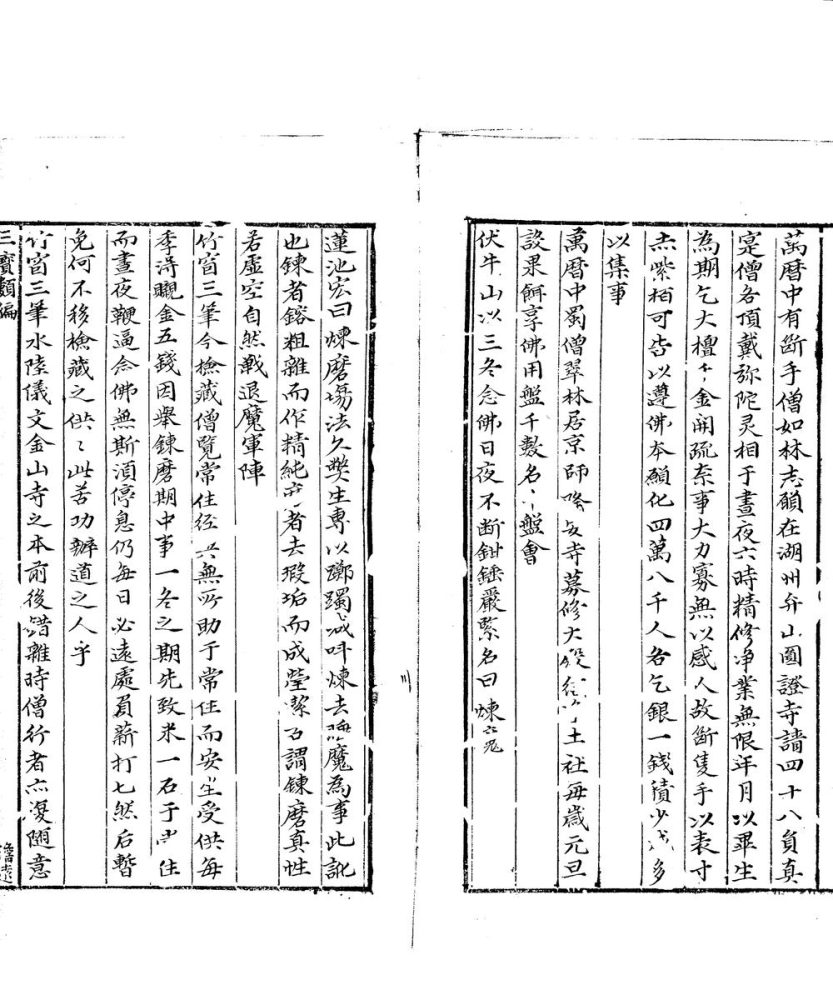 萬曆中有斷手僧如林志願在湖州弁山圓證寺請四十八員真
寔僧各頂戴弥陀灵相于晝夜六時精修净業無限年月以畢生
為期乞大檀々金開疏柰事大力寡無以感人故斷隻手以表寸
紫栢可皆以遵佛本願化四萬八千人各乞銀一錢積少多
以集事
萬曆中蜀僧翠林居京師寺募修大土社每歲元旦
設果餌享佛用盤千數名盤會
伏牛山以三冬念佛日夜不断鉗錘嚴緊名曰煉
蓮池宏曰煉磨塲法久獘生專以躑躅呌煉去魔為事此訛
也鍊者鎔粗雜而作精純者去瑕垢而成瑩潔乃謂鍊磨真性
若虛空自然戰退魔軍陣
竹窗三筆今檢藏僧覽常住經無所助于常住而安受供每
季淂䞋金五錢因舉鍊磨期中事一冬之期先致米一石于住
而晝夜鞭逼念佛無斯湏停息仍每日必遠處負薪打七然后暫
免何不移檢藏之供々此苦功辦道之人乎
竹窗三筆水陸儀文金山寺之本前後錯雜時僧行者亦復随意
三寳類編